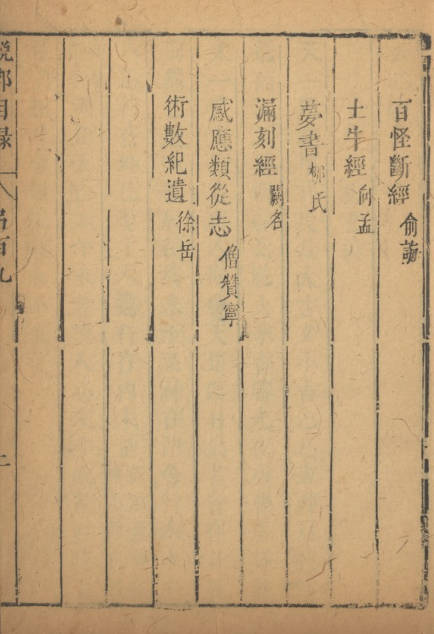 百怪斷經 俞誨
土牛經 向孟
夢書 氏
漏刻經 闕名
感應類從志 僧贊寧
術數紀遺 徐岳
說郛目錄 弓百九 二